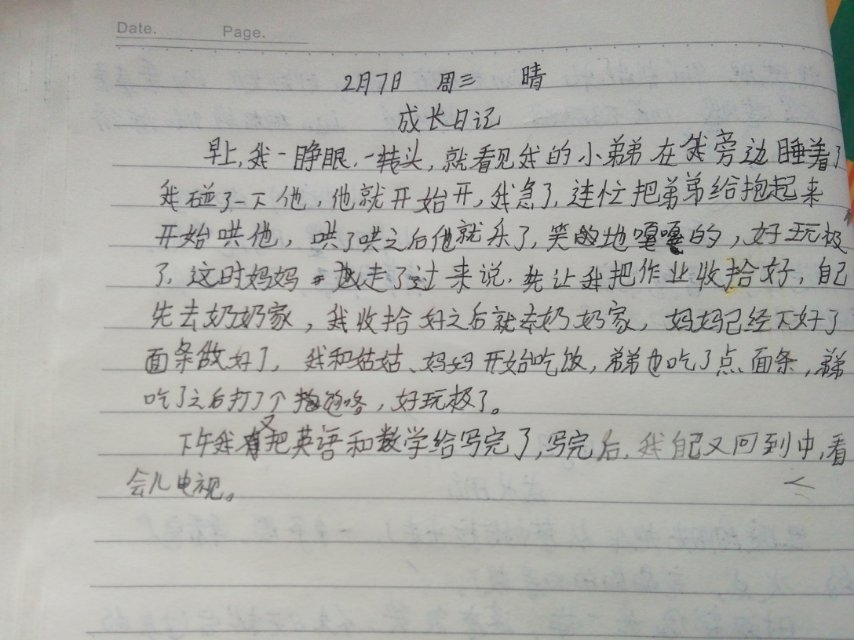 Date. Page.
2月7日 周三 晴
成长日记
早上,我一睁眼,一转头,就看见我的小弟弟在我旁边睡着了
我碰了一下他,他就开始开,我急了,连忙把弟弟给抱起来
开始哄他,哄了哄之后他就乐了,笑的地嘎嘎的,好玩极
了,这时妈妈走了过来说,先让我把作业收拾好,自己
先去奶奶家,我收拾好之后就去奶奶家,妈妈已经下好了
面条做好了,我和姑姑、妈妈开始吃饭,弟弟也吃了点面条,弟弟
吃了之后打了个饱咯,好玩极了。
下午我又把英语和数学给写完了,写完后,我自己又回到中,看
会儿电视。